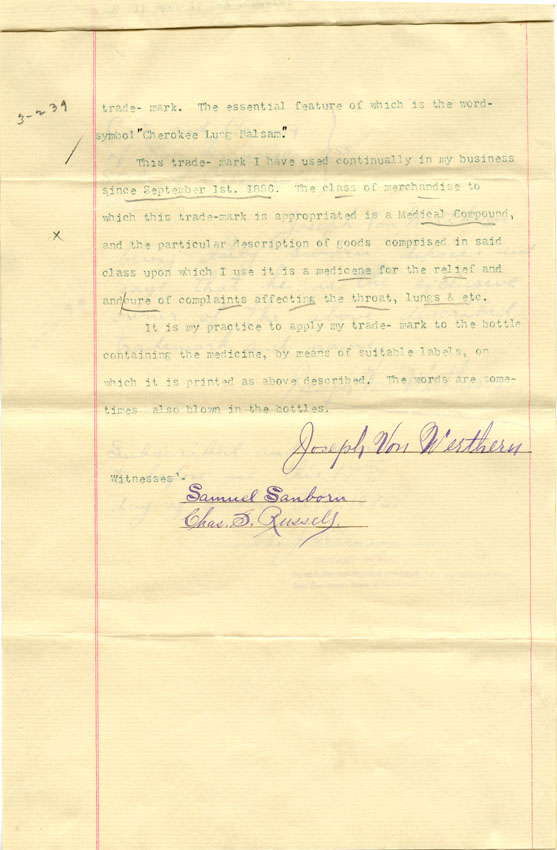 3-239
trade- mark. The essential feature of which is the word-
symbol "Cherokee Lung Balsam."
This trade- mark I have used continually in my business
since September 1st. 1886. The class of merchandise to
which this trade-mark is appropriated is a Medical Compound,
and the particular description of goods comprised in said
class upon which I use it is a medicene for the relief and
andcure of complaints affecting the throat, lungs & etc.
It is my practice to apply my trade- mark to the bottle
containing the medicine, by means of suitable labels, on
which it is printed as above described. The words are some-
times also blown in the bottles.
Joseph Von Westhern
Witnesses'.
Samuel Sanborn
Chas. S. Russell.